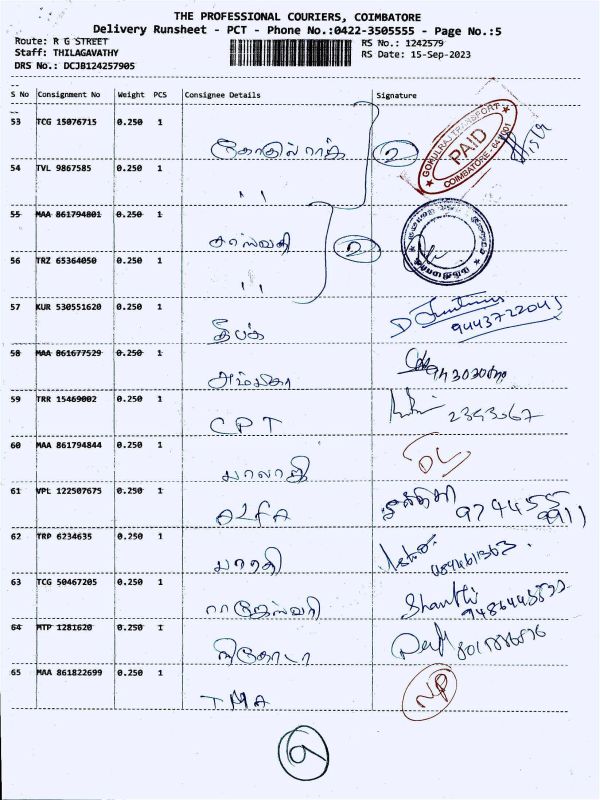 THE PROFESSIONAL COURIERS, COIMBATORE
Delivery Runsheet - PCT - Phone No.:0422-3505555 - Page No.:5
Route: R G STREET
RS No.: 1242579
Staff: THILAGAVATHY
RS Date: 15-Sep-2023
DRS No.: DCJB124257905
S No Consignment No Weight PCS Consignee Details Signature
53 TCG 15076715 0.250 1 கோகுல்ராஜ் 2
GOKULRAJ TRANSPORT PAID COIMBATORE - 641001
54 TVL 9867585 0.250 1 ''
55 MAA 861794801 0.250 1 சரஸ்வதி 2
56 TRZ 65364050 0.250 1 ''
57 KUR 530551620 0.250 1 தீபக் 9443722045
58 MAA 861677529 0.250 1 அம்பிகா
59 TRR 15469002 0.250 1 CPT 2393067
60 MAA 861794844 0.250 1 பாலாஜி DL
61 VPL 122507675 0.250 1 ALFA
62 TRP 6234635 0.250 1 பாரதி
63 TCG 50467205 0.250 1 ராஜேஸ்வரி Shanthi
64 MTP 1281620 0.250 1
65 MAA 861822699 0.250 1 TMA NP